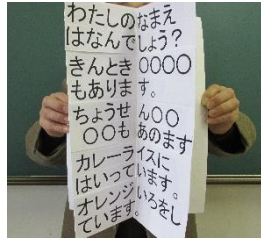 わたしのなまえ
はなんでしょう？
きんとき〇〇〇〇
もあります。
ちょうせん〇〇
〇〇もあのます
カレーライスに
はいっています。
オレンジいろをし
ています。